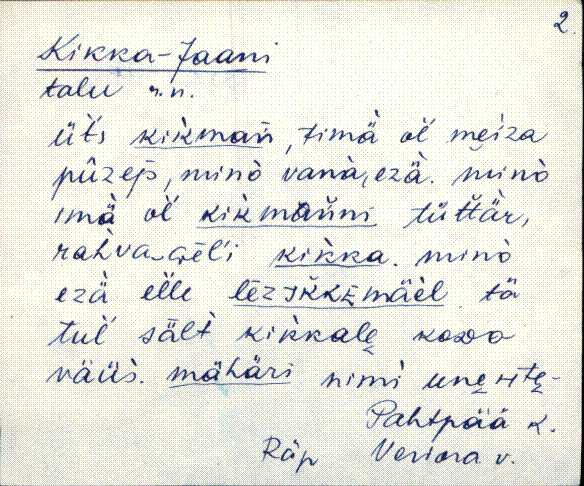 2.
Kikka-Jaani
talu r.n.
üt's kik̀mań, timä ol' mèiza
pūzep̄, minò vanà,ezä. minò
imä ol' kik̀mańni tüt́t́är,
rahva.gēl'i kik̀ka. minò
ezä elle lēzikkemäel tä
tul' sält kikkalȩ kodo
väüs̀. mähäri nimì unȩ‿tȩ-
Pahtpää k.
Räp Veriora v.